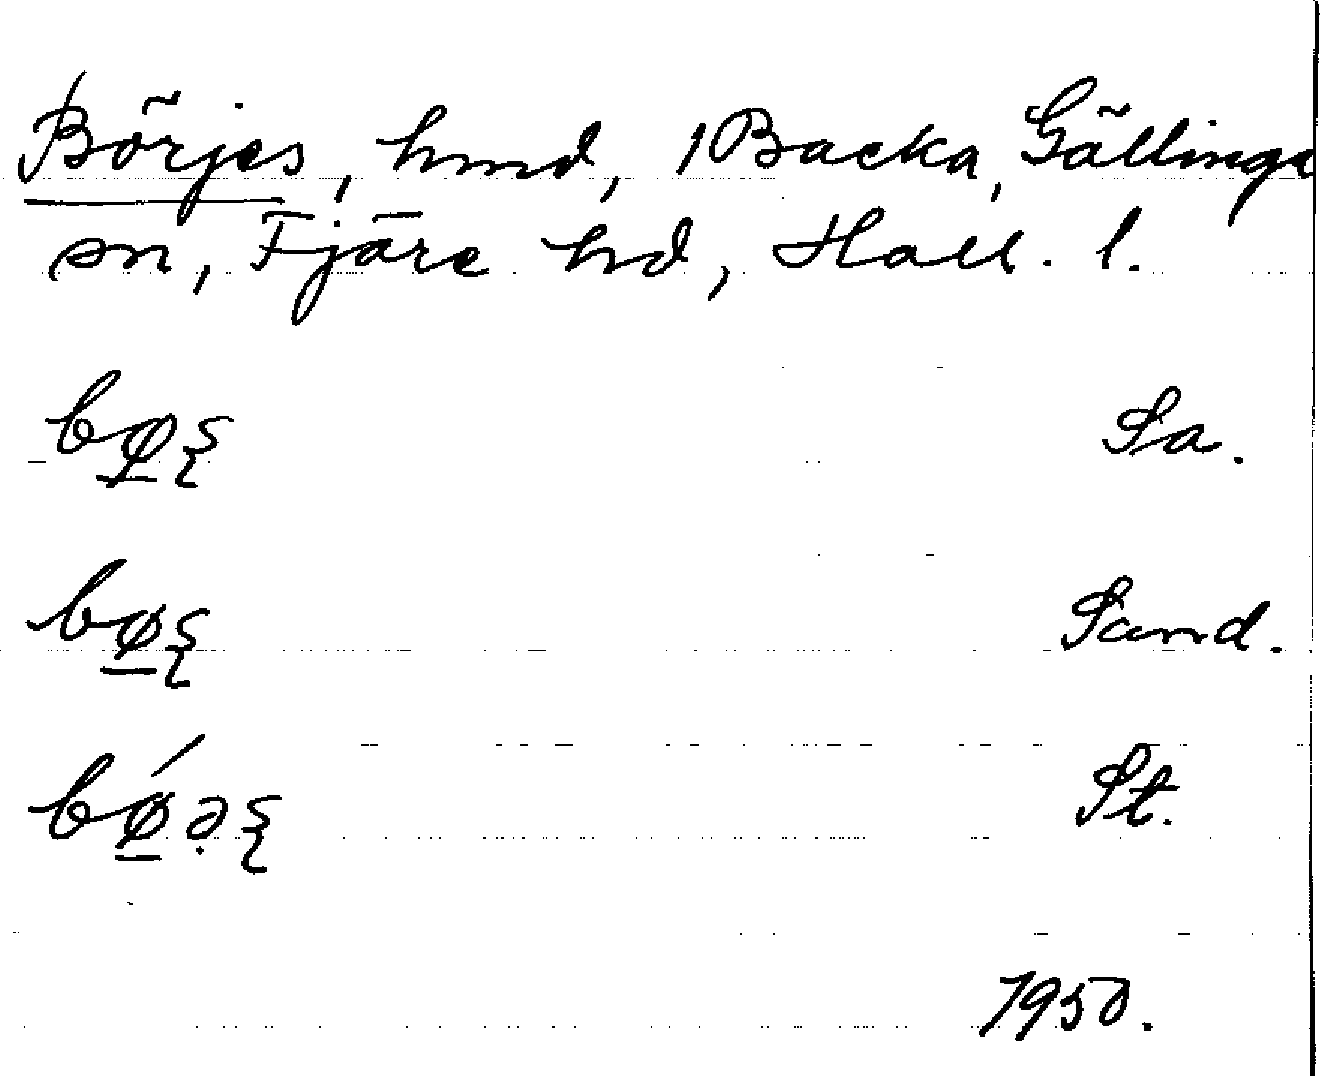 Börjes, hmd, 1 Backa, Gällinge
sn, Fjäre hd, Hall. l.
bø̲ξ Sa.
bø̲ξ Sand.
bǿ̲ə̣ξ St.
1950.